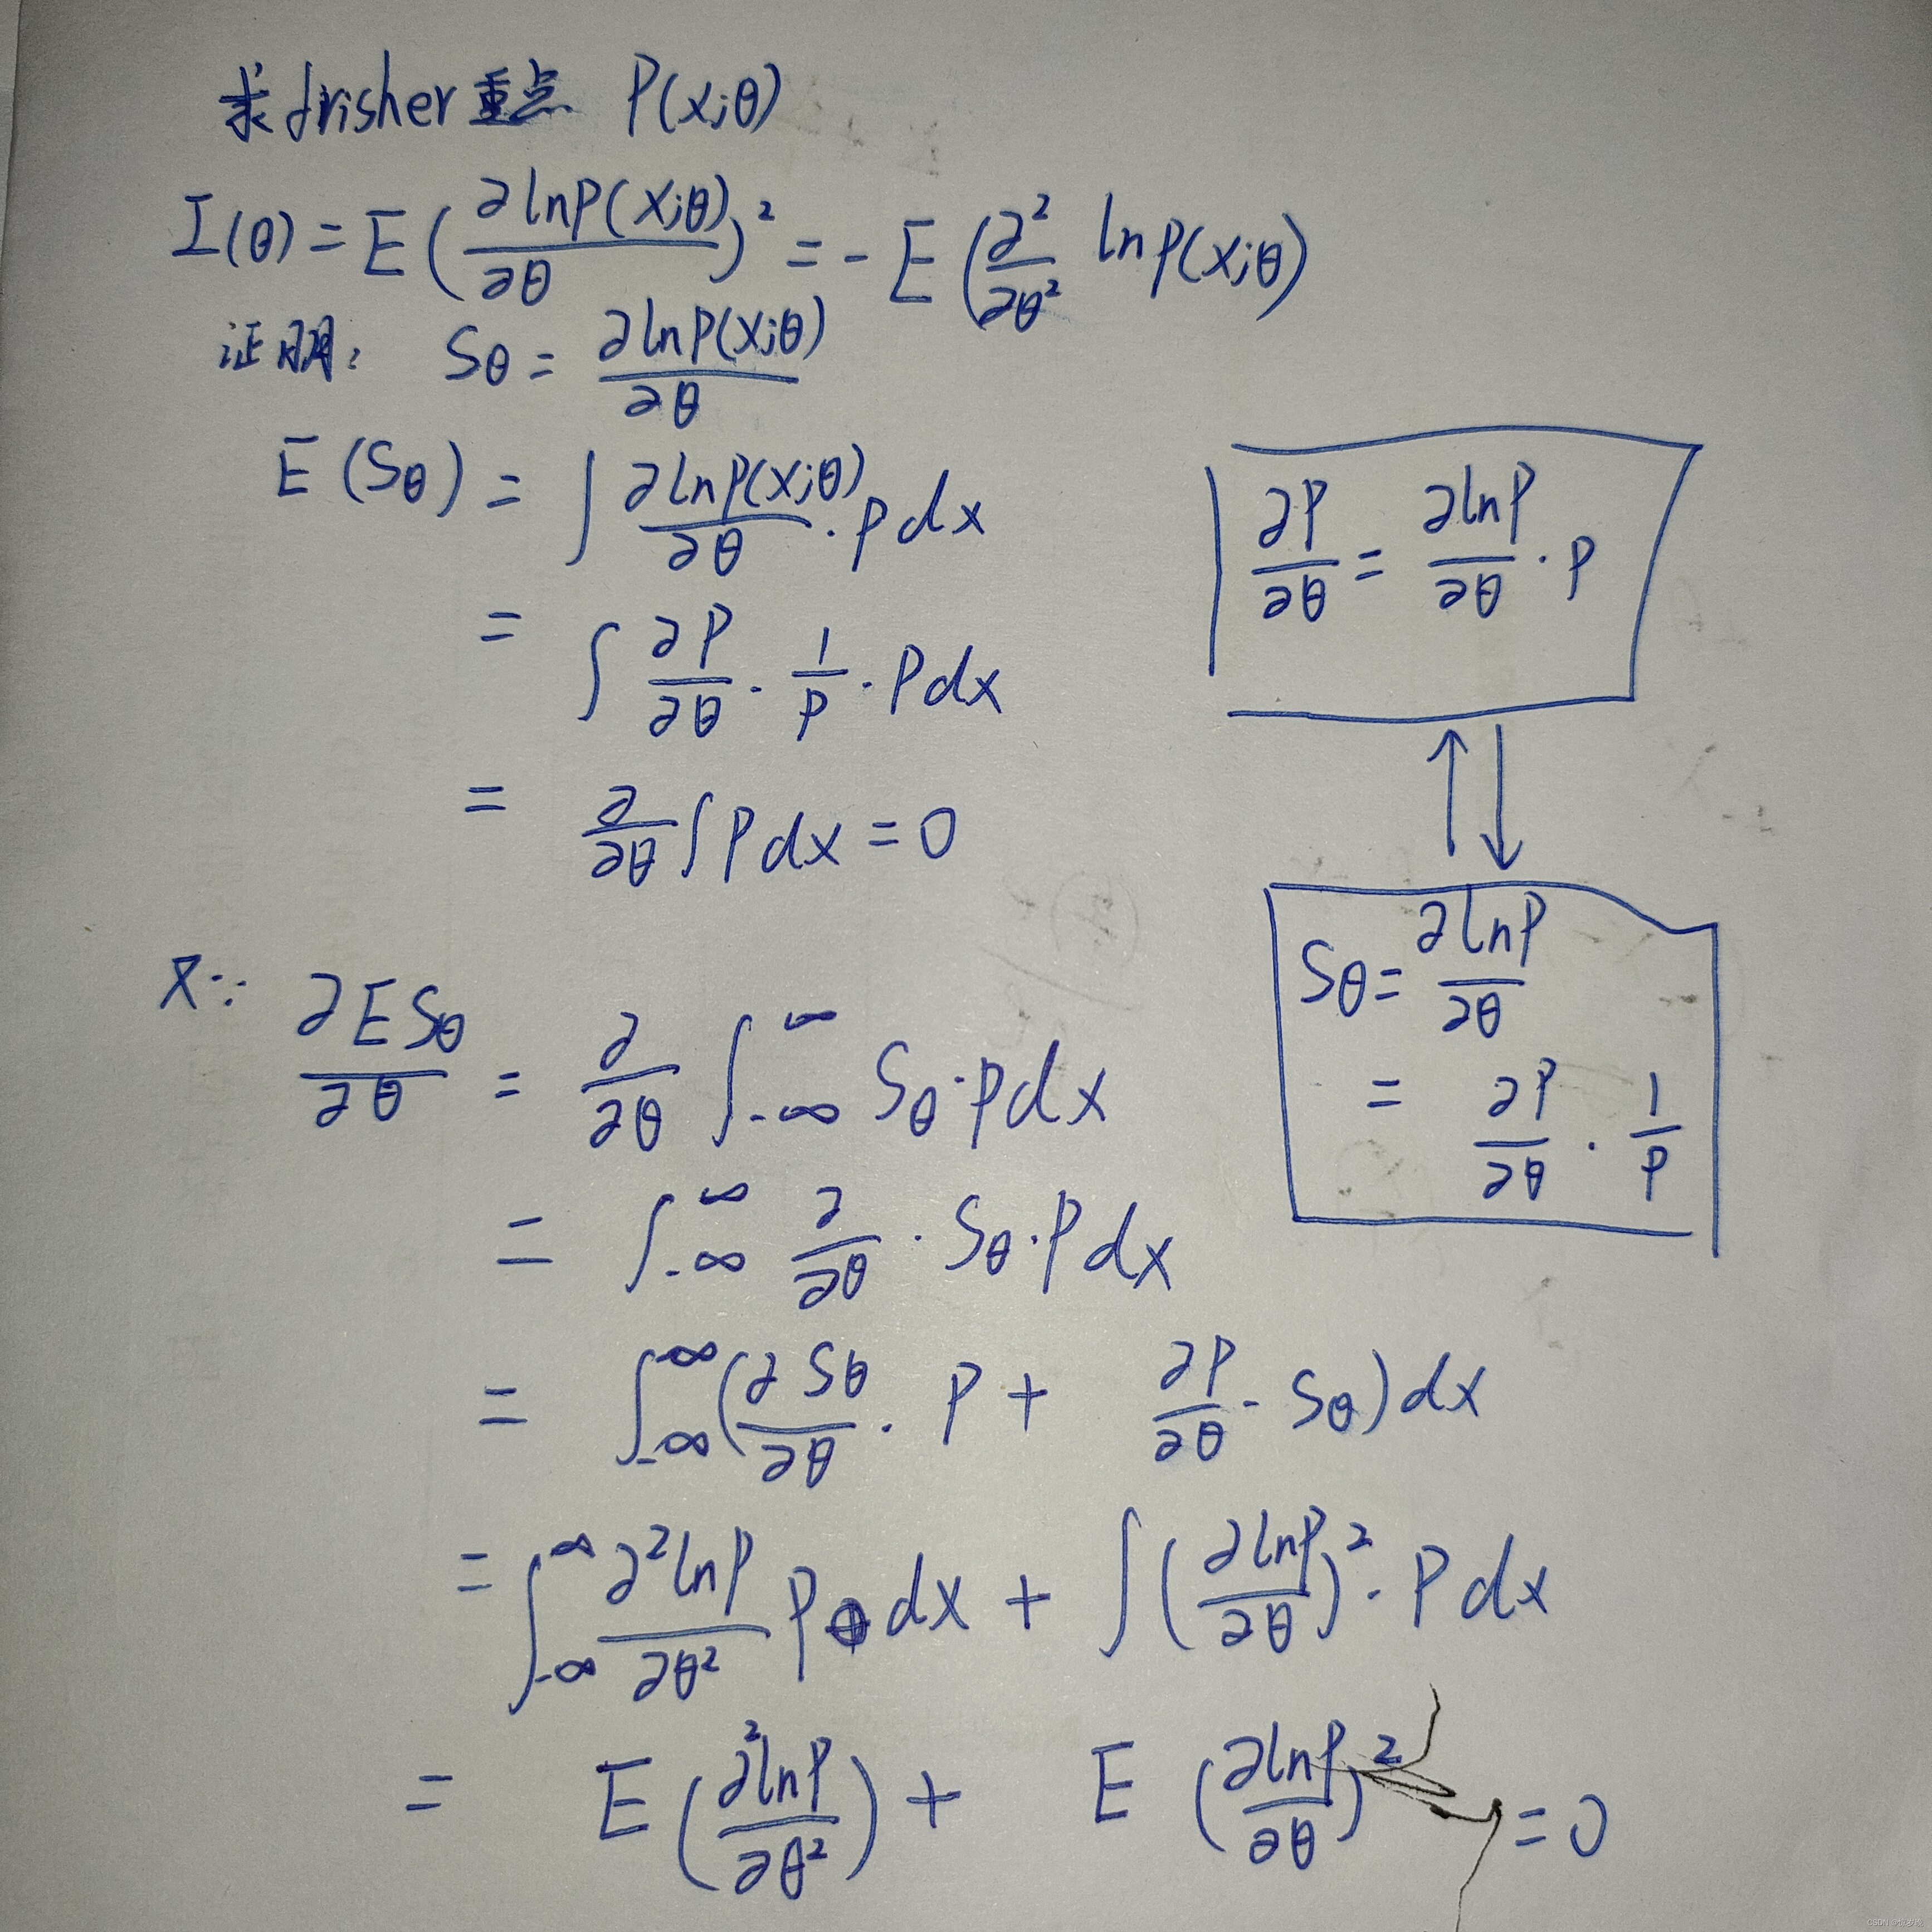 求frisher重点 P(x;θ)
I(θ) = E(∂lnP(x;θ)/∂θ)² = -E(∂²/∂θ² lnp(x;θ)
证明: Sθ = ∂lnp(x;θ)/∂θ
E(Sθ) = ∫ ∂lnp(x;θ)/∂θ · p dx
= ∫ ∂P/∂θ · 1/p · P dx
= ∂/∂θ ∫ P dx = 0
∂P/∂θ = ∂lnP/∂θ · P
Sθ = ∂lnP/∂θ
= ∂P/∂θ · 1/P
又∵ ∂ESθ/∂θ = ∂/∂θ ∫_{-∞}^{∞} Sθ·p dx
= ∫_{-∞}^{∞} ∂/∂θ · Sθ·P dx
= ∫_{-∞}^{∞} (∂Sθ/∂θ · P + ∂P/∂θ · Sθ) dx
= ∫_{-∞}^{∞} ∂²lnP/∂θ² P dx + ∫ (∂lnP/∂θ)² · P dx
= E(∂²lnP/∂θ²) + E(∂lnP/∂θ)² = 0